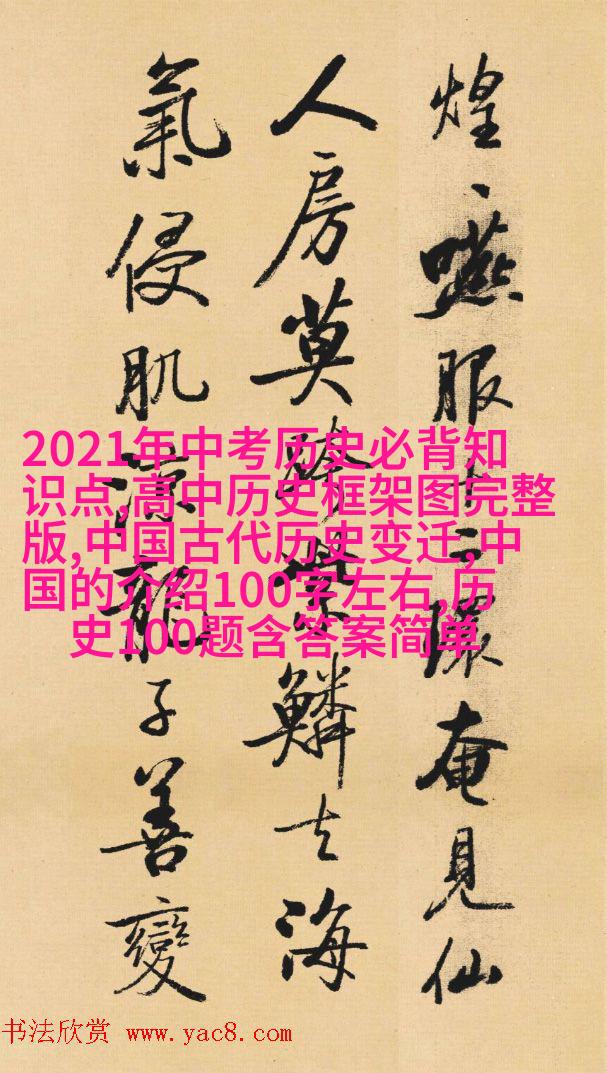 煌、嚥服十二環奄見仙
人房莫跨紫鱗去海
氣侵肌涼龍子善變
2021年中考历史必背知
识点,高中历史框架图完整
版,中国古代历史变迁,中
国的介绍100字左右,历
史100题含答案简单
书法欣赏 www.yac8.com